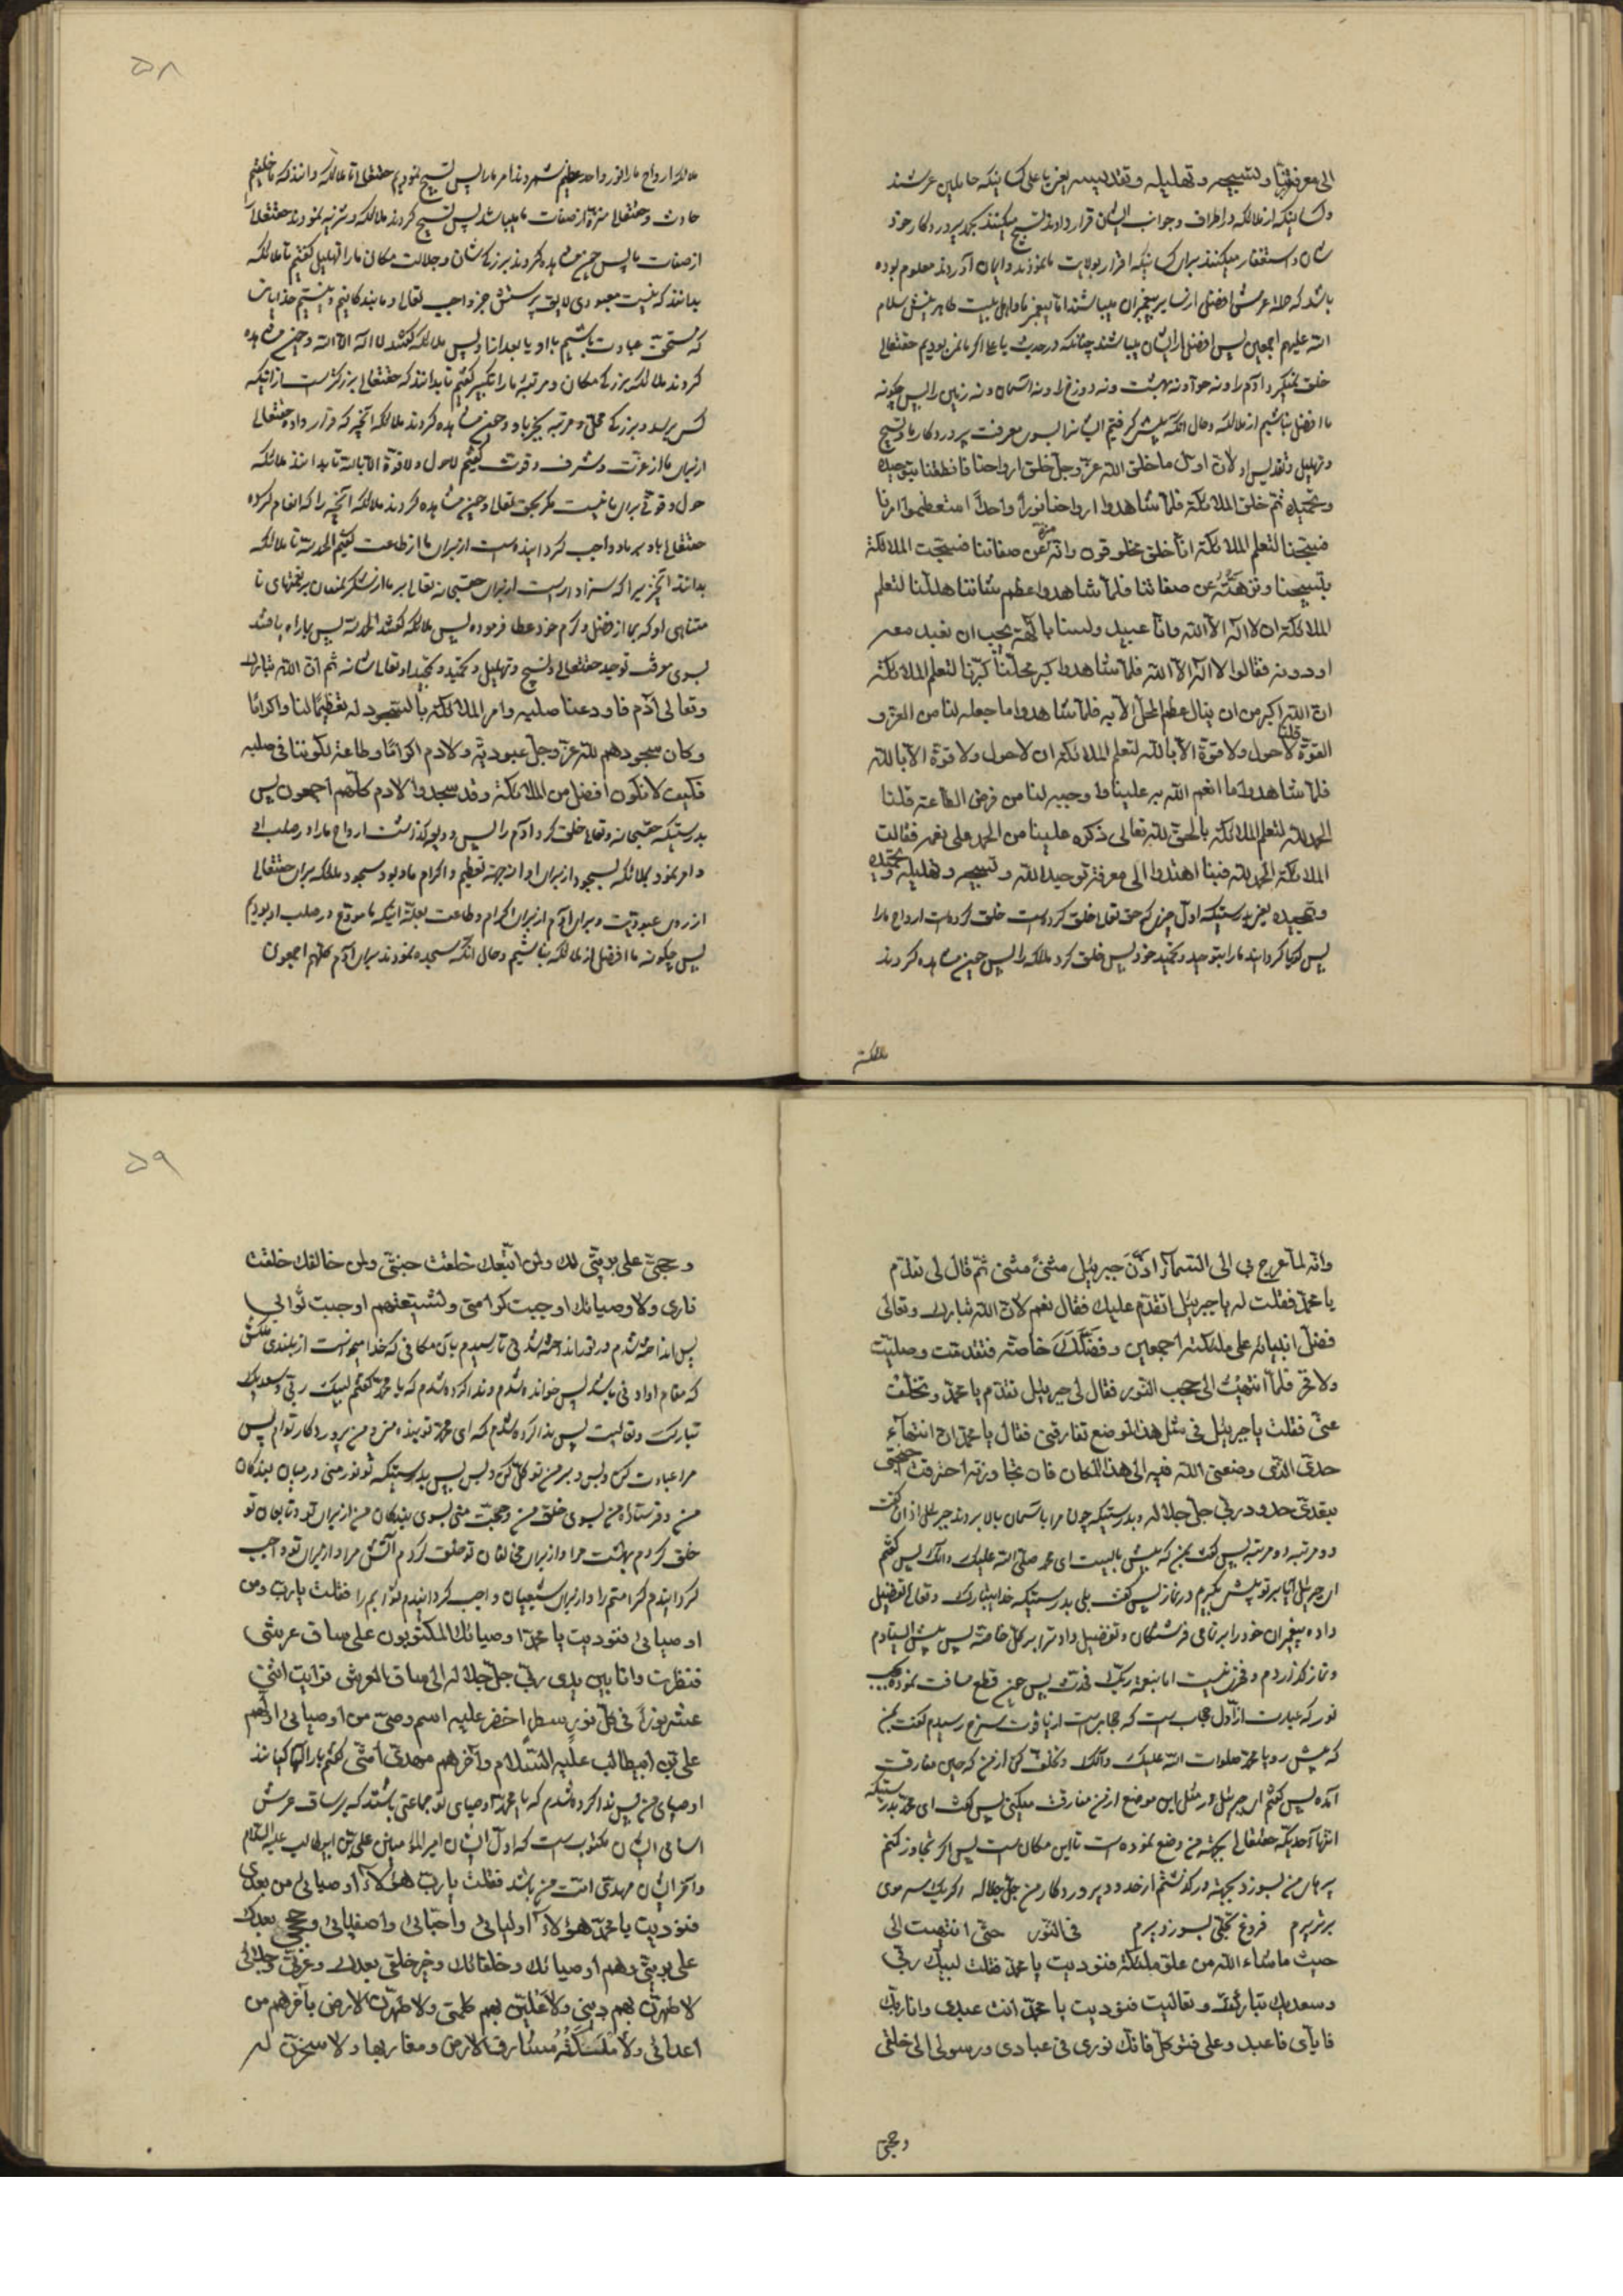 الی معرفة ربنا و تسبیحه و تهلیله و تقدیسه یعنی یا علی کسانیکه حاملین عرشند
و کسانیکه از ملائکه در اطراف و جوانب ایشان قرار دادند تسبیح میکنند بحمد پروردکار خود
شان و استغفار میکنند برای کسانیکه اقرار بولایت ما نمودند و ایمان آوردند معلوم بوده
باشد که حملهٔ عرش افضل از سایر پیغمبران میباشند اما پیغمبر ما و اهل بیت طاهرینش سلام
الله علیهم اجمعین پس افضل از ایشان میباشند چنانکه در حدیث یا علی اکر ما نمی بودیم حقتعالی
خلق نمیکرد آدم را و نه حوا و نه بهشت و نه دوزخ را و نه آسمان و نه زمین را پس چکونه
ما افضل نباشیم از ملائکه و حال آنکه پیش کرفتیم ایشانرا بسوی معرفت پروردکار ما و تسبیح
و تهلیل و تقدیس او لان اول ما خلق الله عز و جل خلق ارواحنا فانطقنا بتوحیده
و تحمیده ثم خلق الملائکة فلما شاهدوا ارواحنا نورا واحدا استعظموا امرنا
فسبحنا لتعلم الملائکة انا خلق مخلوقون و انه منزه عن صفاتنا فسبحت الملائکة
بتسبیحنا و نزهته عن صفاتنا فلما شاهدوا عظم شاننا هللنا لتعلم
الملائکة ان لا اله الا الله و انا عبید و لسنا بالهة یجب ان نعبد معه
او دونه فقالوا لا اله الا الله فلما شاهدوا کبر محلنا کبرنا لتعلم الملائکة
ان الله اکبر من ان ینال عظم المحل الا به فلما شاهدوا ما جعله لنا من العز و
القوة قلنا لا حول و لا قوة الا بالله لتعلم الملائکة ان لا حول و لا قوة الا بالله
فلما شاهدوا ما انعم الله به علینا و اوجبه لنا من فرض الطاعة قلنا
الحمد لله لتعلم الملائکة ما لحق لله تعالی ذکره علینا من الحمد علی نعمه فقالت
الملائکة الحمد لله فبنا اهتدوا الی معرفة توحید الله و تسبیحه و تهلیله و تحمیده
و تمجیده یعنی بدرستیکه اول چیزی که حق تعالی خلق کرده است خلق کرده است ارواح ما را
پس کویا کردانید ما را بتوحید و تحمید خود پس خلق کرد ملائکه را پس حین مشاهده کردند
ملائکه
۵۸
ملائکه ارواح ما را نور واحد عظیم شمردند امر ما را پس تسبیح نمودیم حقتعالی را تا ملائکه دانند که ما خلقیم
حادث و حقتعالی منزه از صفات ما میباشد پس تسبیح کردند ملائکه و تنزیه نمودند حقتعالی را
از صفات ما پس حین مشاهده کردند بزرکی شان و جلالت مکان ما را تهلیل کفتیم تا ملائکه
بدانند که نیست معبودی لایق پرستش جز واجب تعالی و ما بندکانیم و نیستیم خدایانی
که مستحق عبادت باشیم با او یا بعد از او پس ملائکه کفتند لا اله الا الله و حین مشاهده
کردند ملائکه بزرکی مکان و مرتبهٔ ما را تکبیر کفتیم تا بدانند که حقتعالی بزرکتر است از اینکه
کسی برسد ببزرکی محل و مرتبه بجز باو و حین مشاهده کردند ملائکه آنچه که قرار داده حقتعالی
از برای ما از عزت و شرف و قوت کفتیم لا حول و لا قوة الا بالله تا بدانند ملائکه
حول و قوتی برای ما نیست مکر بحق تعالی و حین مشاهده کردند ملائکه آنچه را که انعام کرده
حقتعالی باو بر ما و واجب کردانیده است از برای ما از طاعت کفتیم الحمد لله تا ملائکه
بدانند آنچیزیرا که سزاوار است از برای حق سبحانه تعالی بر ما از شکر نعمتهای نا
متناهی او که بما از فضل و کرم خود عطا فرموده پس ملائکه کفتند الحمد لله پس بما راه یافتند
بسوی معرفت توحید حقتعالی و تسبیح و تهلیل و تحمید و تمجید او تعالی شانه ثم ان الله تبارک
و تعالی خلق آدم فاودعنا صلبه و امر الملائکة بالسجود له تعظیما لنا و اکراما
و کان سجودهم لله عز و جل عبودیة و لادم اکراما و طاعة لکوننا فی صلبه
فکیف لا نکون افضل من الملائکة و قد سجدوا لادم کلهم اجمعون پس
بدرستیکه حق سبحانه و تعالی خلق کرد آدم را پس ودیعه کذاشت ارواح ما را در صلب او
و امر نمود ملائکه بسجود از برای او از جهة تعظیم و اکرام ما و بود سجود ملائکه برای حقتعالی
از روی عبودیت و برای آدم از برای اکرام و طاعت بعلة اینکه ما موقع در صلب او بودیم
پس چکونه ما افضل از ملائکه نباشیم و حال آنکه سجده نمودند برای آدم کلهم اجمعون
و انه لما عرج بی الی السماء اذن جبرئیل مثنی مثنی ثم قال لی تقدم
یا محمد فقلت له یا جبرئیل اتقدم علیک فقال نعم لان الله تبارک و تعالی
فضل انبیائه علی ملئکته اجمعین و فضلک خاصة فتقدمت و صلیت
و لا فخر فلما انتهیت الی حجب النور فقال لی جبرئیل تقدم یا محمد و تخلف
عنی فقلت یا جبرئیل فی مثل هذا الموضع تفارقنی فقال یا محمد ان انتهاء
حدی الذی وضعنی الله فیه الی هذا المکان فان تجاوزته احترقت اجنحتی
بتعدی حدود ربی جل جلاله و بدرستیکه چون مرا باسمان بالا بردند جبرئیل اذان کفت
دو مرتبه دو مرتبه پس کفت بمن که پیش بایست ای محمد صلی الله علیک و آلک پس کفتم
ای جبرئیل آیا بر تو پیش بکیرم در نماز پس کفت بلی بدرستیکه خدا تبارک و تعالی تفضیل
داده پیغمبران خود را بر تمامی فرشتکان و تفضیل داد ترا بر کل خاصة پس پیش ایستادم
و نماز کذاردم و فخری نیست اما بنعمة ربک فحدث پس حین قطع مسافت نموده بحجب
نور که عبارت از اول حجاب است که حجابیست از یاقوت سرخ رسیدم کفت بمن
که پیش رو یا محمد صلوات الله علیک و آلک و تخلف کرد از من که حین مفارقت
آمده پس کفتم ای جبرئیل در مثل این موضع از من مفارقت میکنی پس کفت ای محمد بدرستیکه
انتهاء حدیکه حقتعالی بجهة من وضع نموده است تا این مکان است پس اکر تجاوز کنم
پرهای من بسوزد بجهة در کذشتنم از حدود پروردکار من جل جلاله اکر یک سر موی
برتر پرم فروغ تجلی بسوزد پرم فی النور حتی انتهیت الی
حیث ما شاء الله من علو ملکه فنودیت یا محمد فقلت لبیک ربی
و سعدیک تبارکت و تعالیت فنودیت یا محمد انت عبدی و انا ربک
فایای فاعبد و علی فتوکل فانک نوری فی عبادی و رسولی الی خلقی
و حجتی
۵۹
و حجتی علی بریتی لک و لمن اتبعک خلقت جنتی و لمن خالفک خلقت
ناری و لاوصیائک اوجبت کرامتی و لشیعتهم اوجبت ثوابی
پس انداخته شدم در نور انداخته شدنی تا رسیدم بآن مکانی که خدا میخواست از بلندی ملکش
که مقام او ادنی باشد پس خوانده شدم و ندا کرده شدم که یا محمد کفتم لبیک ربی و سعدیک
تبارکت و تعالیت پس ندا کرده شدم که ای محمد تو بندهٔ من و من پروردکار توام پس
مرا عبادت کن و بس و بر من توکل کن و بس پس بدرستیکه تو نور منی در میان بندکان
من و فرستادهٔ من بسوی خلق من و حجت منی بسوی بندکان من از برای تو و تابعان تو
خلق کردم بهشت مرا و از برای مخالفان تو خلق کردم آتش مرا و از برای تو واجب
کردانیدم کرامتم را و از برای شیعیان واجب کردانیدم ثوابم را فقلت یا رب و من
اوصیائی فنودیت یا محمد اوصیائک المکتوبون علی ساق عرشی
فنظرت و انا بین یدی ربی جل جلاله الی ساق العرش فرایت اثنی
عشر نورا فی کل نور سطر اخضر علیه اسم وصی من اوصیائی اولهم
علی بن ابیطالب علیه السلام و آخرهم مهدی امتی کفتم بارالها کیانند
اوصیای من پس ندا کرده شدم که یا محمد اوصیای تو جماعتی باشند که بر ساق عرش
اسامی ایشان مکتوب است که اول ایشان امیر المؤمنین علی بن ابیطالب علیه السلام
و آخر ایشان مهدی امت من باشد فقلت یا رب هؤلاء اوصیائی من بعدی
فنودیت یا محمد هؤلاء اولیائی و احبائی و اصفیائی و حججی بعدک
علی بریتی و هم اوصیائک و خلفائک و خیر خلقی بعدک و عزتی و جلالی
لاظهرن بهم دینی و لاعلین بهم کلمتی و لاطهرن الارض بآخرهم من
اعدائی و لاملکنه مشارق الارض و مغاربها و لاسخرن له